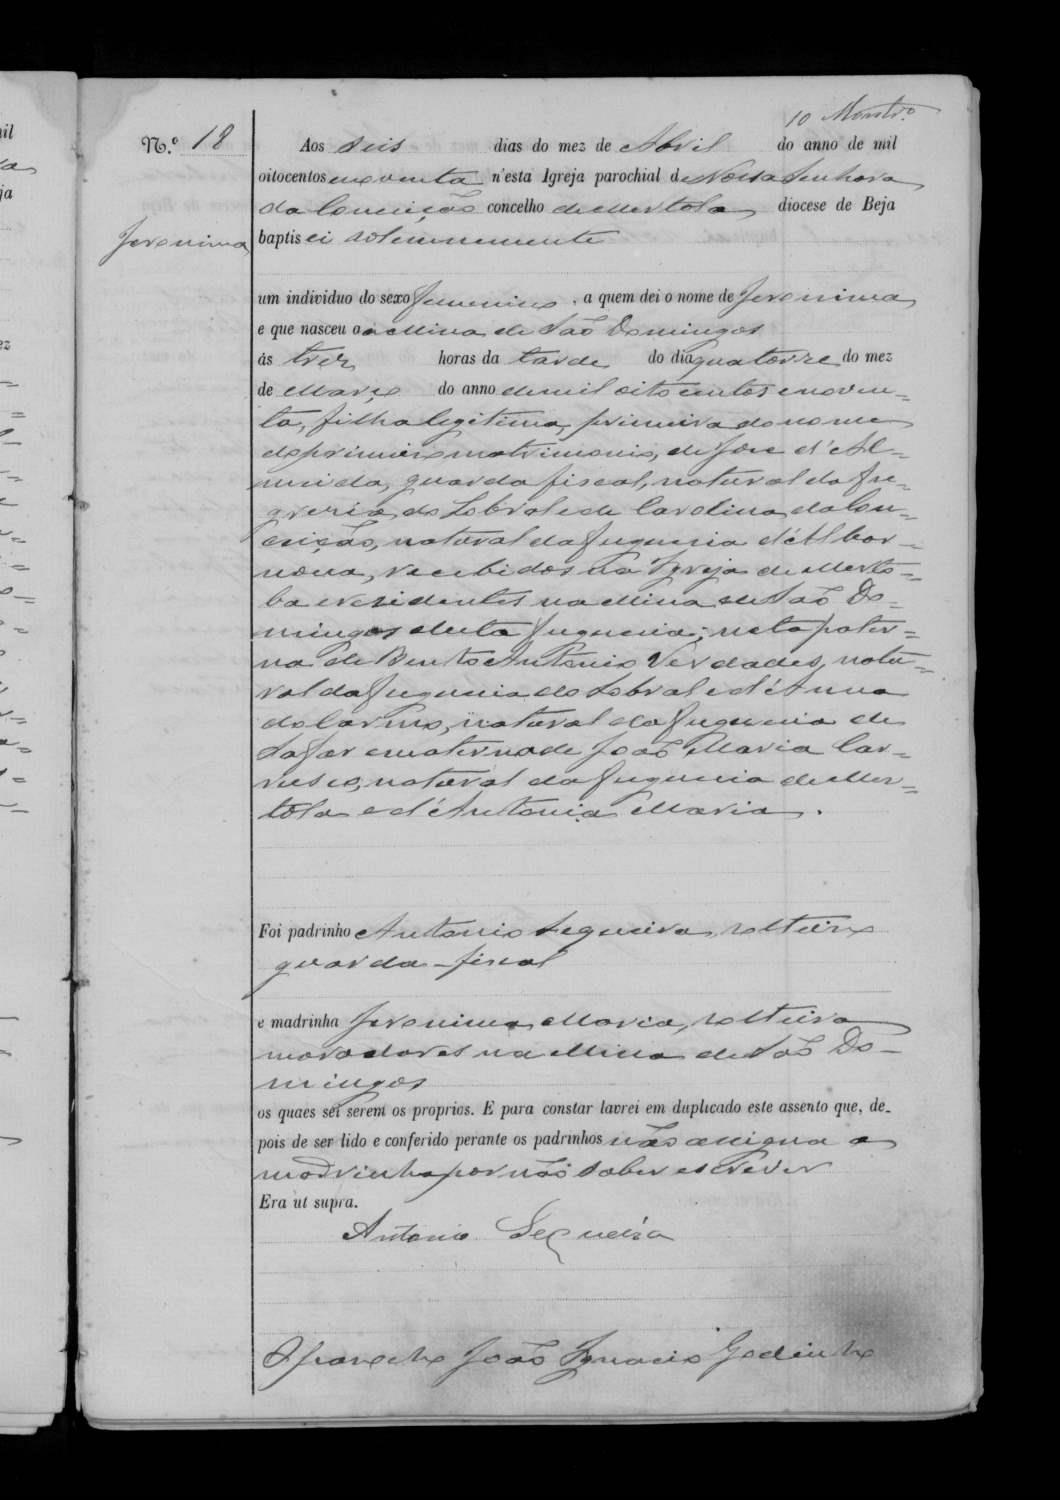 10 Monteiro
N.º 18
Aos seis dias do mez de Abril do anno de mil
oitocentos enoventa n'esta Igreja parochial de Nossa Senhora
da Conceição concelho de Mertola diocese de Beja
Jeronima
baptisei solemnemente
um individuo do sexo femenino, a quem dei o nome de Jeronima
e que nasceu na Mina de São Domingos
ás trez horas da tarde do dia quatorze do mez
de Março do anno de mil oitocentos enoven=
ta, filha legitima, primeira do nome
do primeiro matrimonio, de Jose d'Al=
meida, guarda fiscal, natural da fre=
guezia do Sobral e de Carolina da Con=
ceição, natural da freguezia d'Alber=
nôa, recebidos na Igreja de Merto=
la e residentes na Mina de São Do=
mingos desta freguezia; neta pater=
na de Bento Antonio Verdades, natu=
ral da freguezia do Sobral e d'Anna
do Carmo, natural da freguezia de
Safar e materna de João Maria Car=
rusca, natural da freguezia de Mer=
tola e d'Antonia Maria.
Foi padrinho Antonio Sequeira, solteiro
guarda-fiscal
e madrinha Jeronima Maria, solteira
moradores na Mina de São Do-
mingos
os quaes sei serem os proprios. E para constar lavrei em duplicado este assento que, de-
pois de ser lido e conferido perante os padrinhos não assigna a
madrinha por não saber escrever
Era ut supra.
Antonio Sequeira
O parocho João Ignacio Godinho